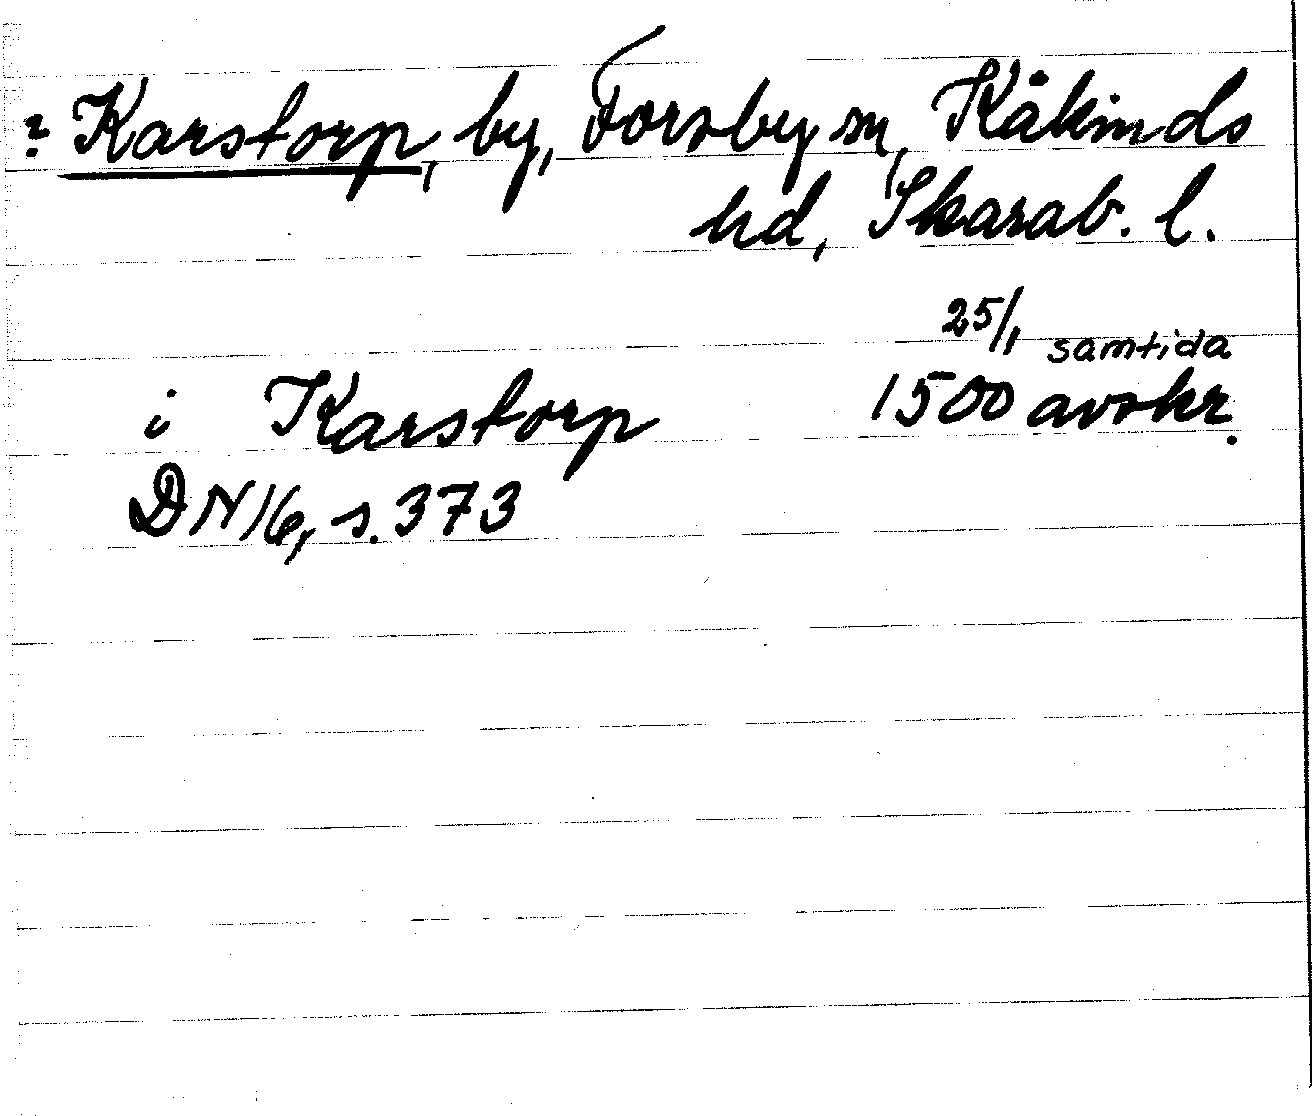 ? Karstorp, by, Forsby sn, Kåkinds
hd, Skarab. l.
25/1 samtida
i Karstorp 1500 avskr.
DN 16, s. 373